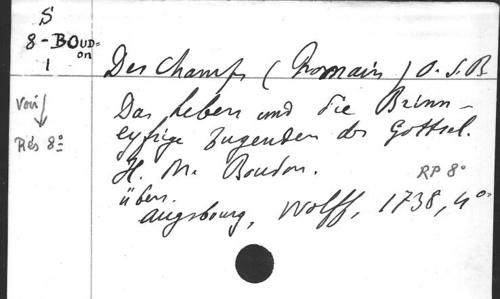 S
8-BOUD=
on
1
Des Champs (Romain) O.S.B
Voir
Rés 8º
Das Leben und die Brinn-
eyfrige Tugenden des Gottsel.
H. M. Boudon.
RP 8º
übers.
Augsbourg, Wolff, 1738, 4º